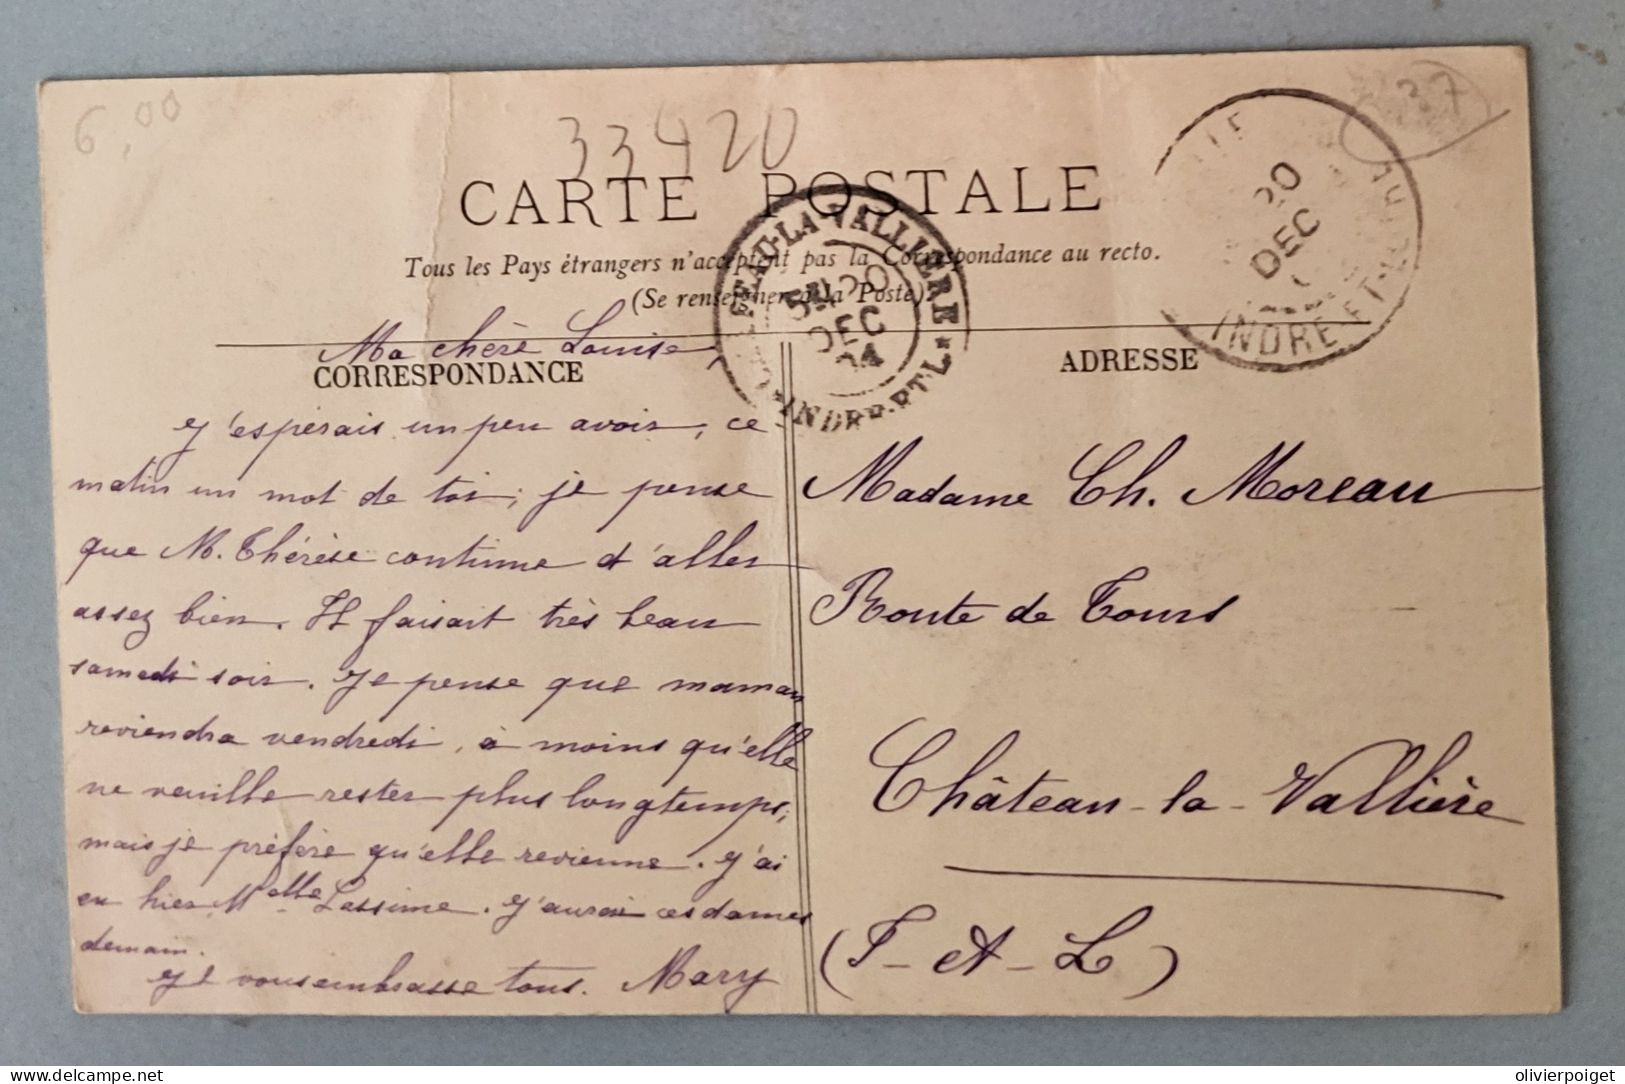 6,00
33420
37
CARTE POSTALE
Tous les Pays étrangers n'acceptent pas la Correspondance au recto.
(Se renseigner à la Poste)
EAU-LA-VALLIERE
20
DEC
04
INDRE-ET-L
20
DEC
INDRE-ET-LOIRE
CORRESPONDANCE
ADRESSE
Ma chère Louise,
J'espérais un peu avoir, ce
matin un mot de toi; je pense
que M. Thérèse continue d'aller
assez bien. Il faisait très beau
samedi soir. Je pense que maman
reviendra vendredi, à moins qu'elle
ne veuille rester plus longtemps;
mais je préfère qu'elle revienne. J'ai
eu hier Melle Lassime. J'aurai ces dames
demain.
Je vous embrasse tous. Mary
Madame Ch. Moreau
Route de Tours
Château-la-Vallière
(I-et-L)
delcampe.net
olivierpoiget